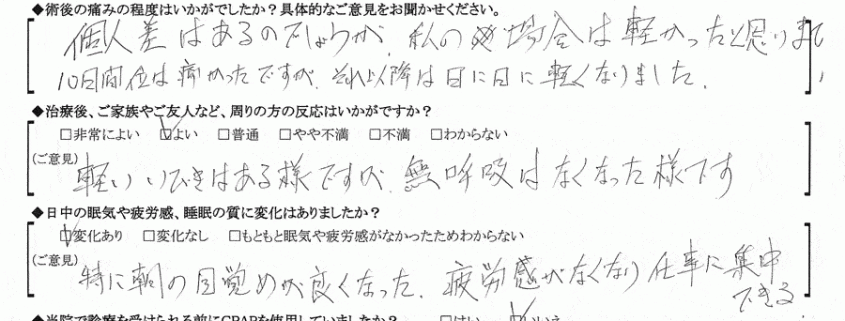 ◆術後の痛みの程度はいかがでしたか?具体的なご意見をお聞かせください。
個人差はあるのでしょうが、私の場合は軽かったと思います
10日間位は痛かったですが、それ以降は日に日に軽くなりました。
◆治療後、ご家族やご友人など、周りの方の反応はいかがですか?
□非常によい ☑よい □普通 □やや不満 □不満 □わからない
(ご意見)
軽いいびきはある様ですが、無呼吸はなくなった様です
◆日中の眠気や疲労感、睡眠の質に変化はありましたか?
☑変化あり □変化なし □もともと眠気や疲労感がなかったためわからない
(ご意見)
特に朝の目覚めが良くなった。疲労感がなくなり仕事に集中
できる
◆当院で診療を受けられる前にCPAPを使用していましたか? □はい ☑いいえ